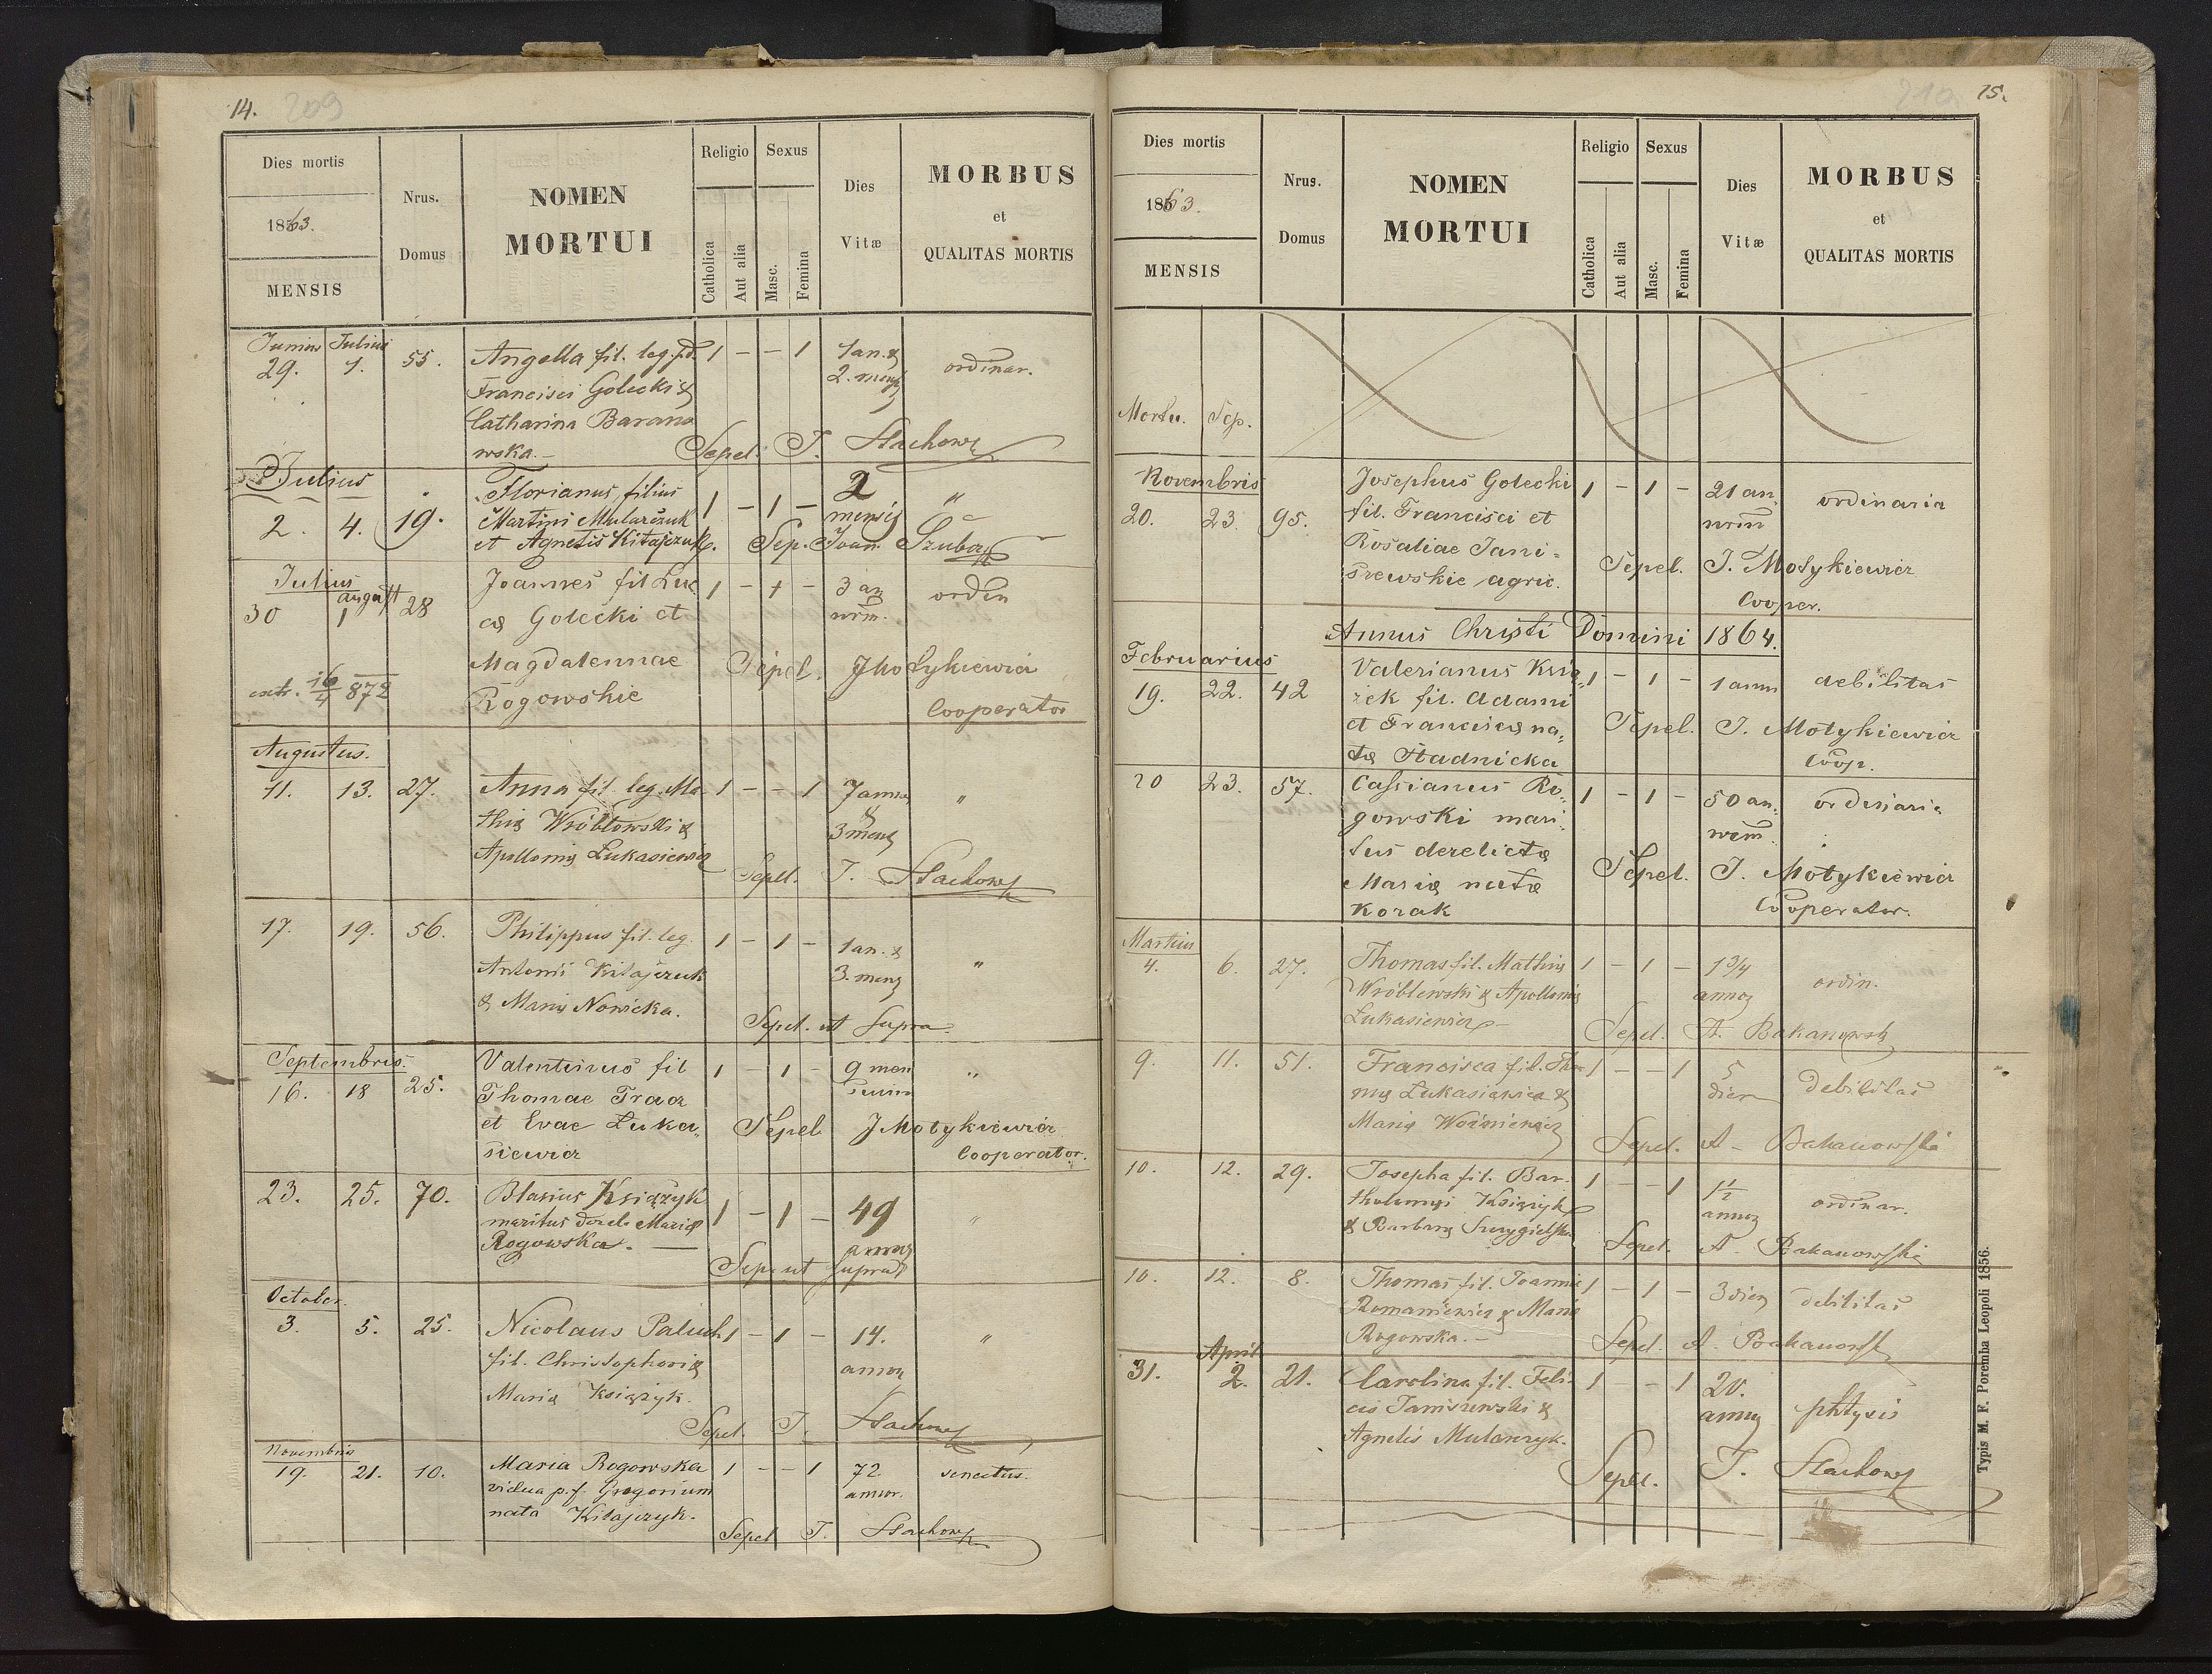 14. 209
Dies mortis
1863.
MENSIS
Nrus.
Domus
NOMEN
MORTUI
Religio
Catholica
Aut alia
Sexus
Masc.
Femina
Dies
Vitæ
MORBUS
et
QUALITAS MORTIS
Junius Julius
29. 1. 55. Angella fil. leg. 1 - - 1 1 an. & ordinar.
Francisci Golecki & 2. mens
Catharina Barano
wska.- Sepel. T. Stachow
Julius
2. 4. 19. Florianus, filius 1 - 1 - 2 "
Martini Mularczuk mensis
et Agnetis Kitajczuk. Sep. Joan. Szuba
Julius
30 August 1 28 Joannes fil Luc 1 - 1 - 3 an ordin
æ Golecki et nrm.
Magdalennae Sepel. J Motykiewicz
extr. 16/4 872 Rogowskie Cooperator
Augustus.
11. 13. 27. Anna fil. leg. Ma- 1 - - 1 7 annor "
thiæ Wróblowski & & 3 mens
Apolloniæ Łukasiewicz
Sepel. T. Stachow
17. 19. 56. Philippus fil. leg. 1 - 1 - 1 an. & "
Antonii Kitajczuk 3. mens
& Mariæ Nowicka.
Sepel. ut supra.
Septembris.
16. 18 25. Valentinus fil 1 - 1 - 9 men "
Thomae Tracz sium
et Evae Łuka, Sepel J Motykiewicz
siewicz Cooperator.
23. 25. 70. Blasius Książyk 1 - 1 - 49 "
maritus derel. Mariæ annor
Rogowska. — Sep. ut supra
October.
3. 5. 25. Nicolaus Paluch 1 - 1 - 14. "
fil. Christophori & annor
Mariæ Książyk.
Sepel. T. Stachow
Novembris
19. 21. 10. Maria Rogowska 1 - - 1 72 senectus.
vidua p. f. Gregorium annor.
nata Kitajczyk.
Sepel T. Stachow
210 15.
Dies mortis
1863.
MENSIS
Nrus.
Domus
NOMEN
MORTUI
Religio
Catholica
Aut alia
Sexus
Masc.
Femina
Dies
Vitæ
MORBUS
et
QUALITAS MORTIS
Mortu. Sep.
Novembris
20. 23. 95. Josephus Golecki 1 - 1 - 21 an ordinaria
fil. Francisci et nrm
Rosaliae Jani=
szewskie agric. Sepel. J. Motykiewicz
Cooper.
Annus Christi Domini 1864.
Februarius
19. 22. 42 Valerianus Ksią 1 - 1 - 1 annu debilitas
żek fil. Adami
et Franciscæ na, Sepel. J. Motykiewicz
tæ Stadnicka Coop.
20 23. 57. Cassianus Ro, 1 - 1 - 50 an. ordinaria
gowski mari, nrm
tus derelictæ Sepel. J. Motykiewicz
Mariæ natæ Cooperator.
Korak
Martius
4. 6. 27. Thomas fil. Mathiæ 1 - 1 - 1 3/4 ordin.
Wróblewski & Apolloniæ annor
Łukasiewicz - Sepel. A. Bakanowski
9. 11. 51. Francisca fil. Tho 1 - - 1 5 debilitas
mæ Łukasiewicz & dier
Mariæ Woźniewicz
Sepel. A - Bakanowski
10. 12. 29. Josepha fil. Bar- 1 - - 1 1 1/2 ordinar.
tholomæi Książyk annor
& Barbaræ Szczygielska Sepel. A. Bakanowski
10. 12. 8. Thomas fil. Joannis 1 - 1 - 3 dier debilitas
Romaniewicz & Mariæ
Rogowska.- Sepel. A. Bakanowski
April
31. 2. 21. Carolina fil. Feli- 1 - - 1 20. phtysis
cis Janiszewski & annor
Agnetis Mularczyk.
Sepel. T. Stachow
Typis M. F. Poremba Leopoli 1856.